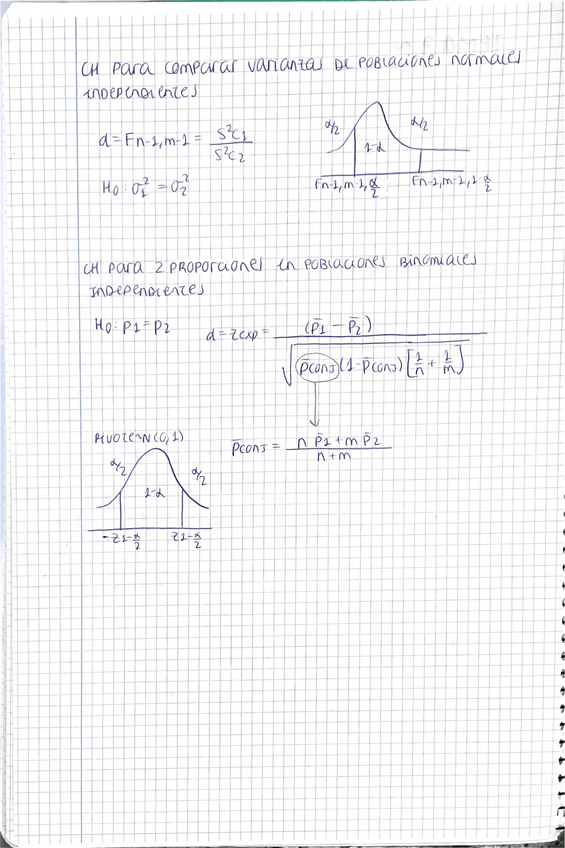 CH PARA COMPARAR VARIANZAS DE POBLACIONES NORMALES
INDEPENDIENTES
d = Fn-1,m-1 = S²c1 / S²c2
α/2 1-α α/2
Fn-1,m-1,α/2 Fn-1,m-1,1-α/2
H0: σ₁² = σ₂²
CH PARA 2 PROPORCIONES EN POBLACIONES BINOMIALES
INDEPENDIENTES
H0: P1 = P2 d = zexp = (p̄1 - p̄2) / √(p̄conj (1-p̄conj) [1/n + 1/m])
p̄conj = (n p̄1 + m p̄2) / (n+m)
PIVOTE N(0,1)
α/2 1-α α/2
-z1-α/2 z1-α/2